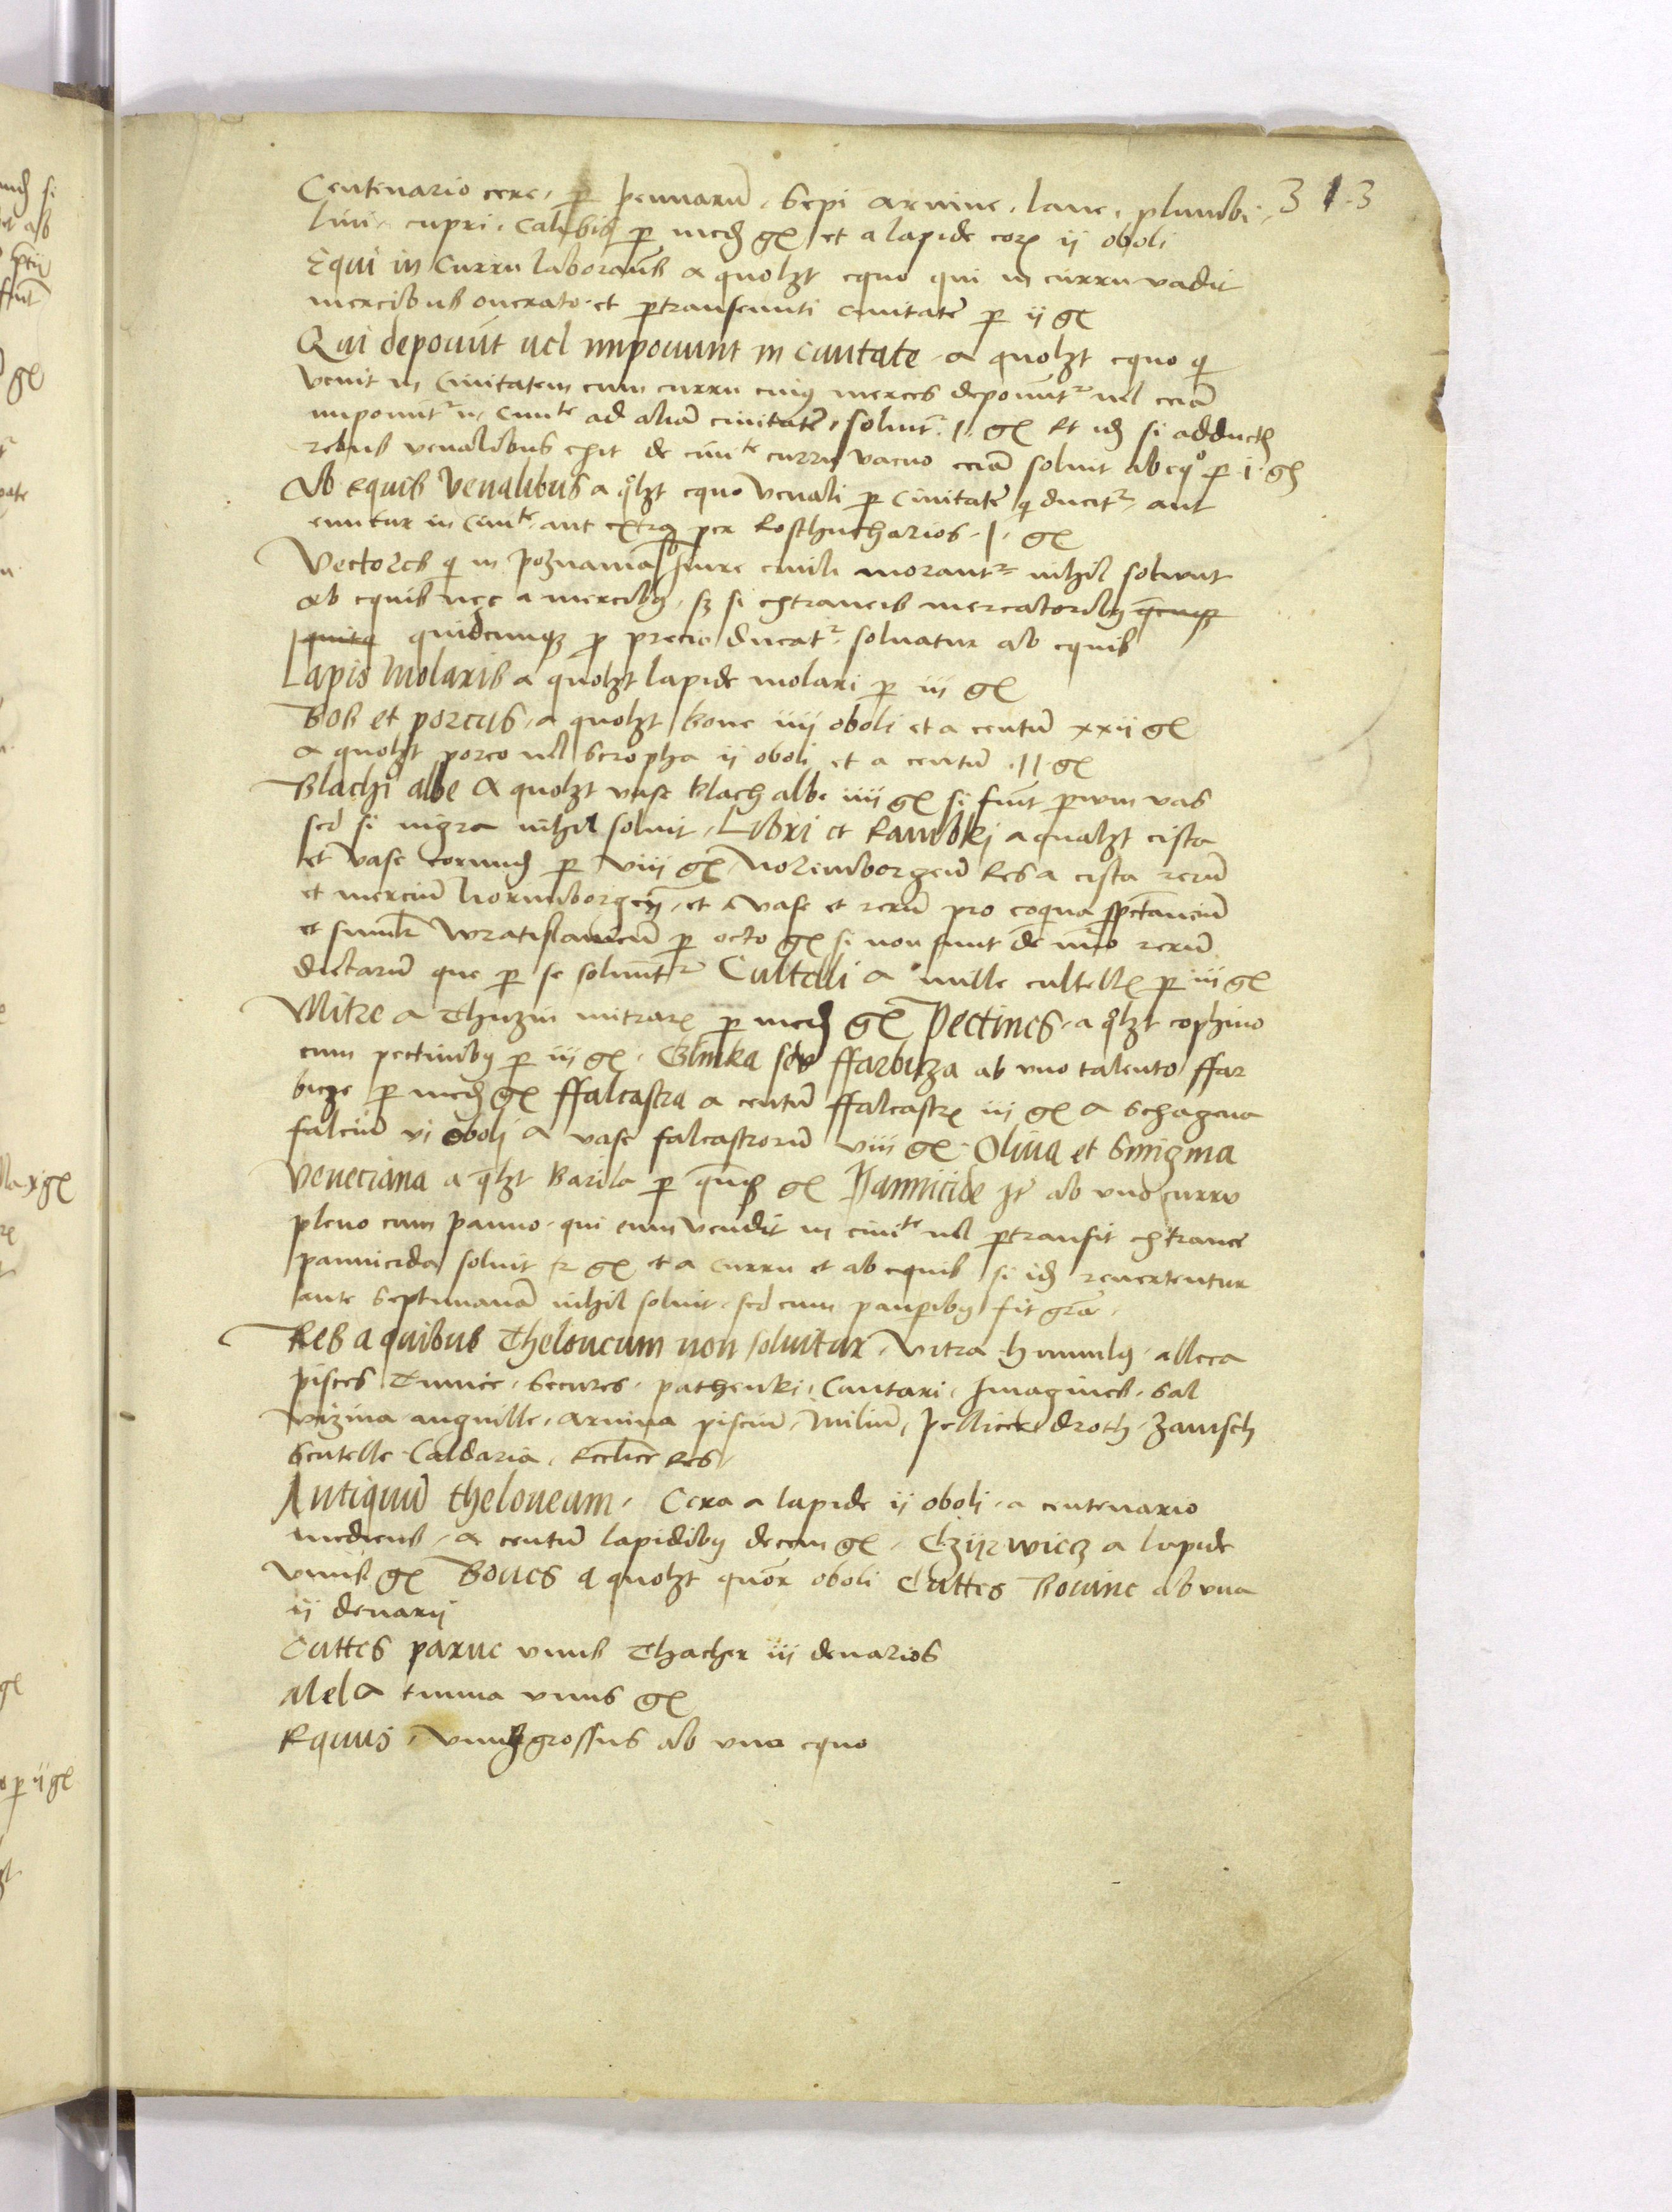 313
Centenario cere, p pennarū, Sepi arvine, lane, plumbi,
lini, cupri, Calibis p med gl et a lapide cor ij oboli
Equi in Curru laborans a quolzt equo qui in curru vadit
mercibus onerato et ptranseunti civitatē p ij gl
Qui deponūt vel imponunt in Civitate a quolzt equo q
venit in Civitatem cum curru cuius merces deponūtr vel eciā
imponūtr in Civite ad aliā civitatē, solvit I gl Et id si adductis
rebus venalibus exit de civite curru vacuo eciā solvit ab eqo p i gl
Ab Equis Venalibus a qlzt equo venali p Civitatē q ducitr aut
emitur in Civite aut extra per Rosthucharios I gl
Vectores q in poznania sub iure civili morantr nihil solvunt
ab equis nec a mercibus, sz si extraneis mercatoribus
quidcunqz p precio ducatr solvatur ab equis
Lapis Molaris a quolzt lapide molari p iii gl
Bos et porcus, a quolzt bove iiij oboli et a centū xxij gl
a quolzt porco vel scropha ij oboli et a centū II gl
Blachi albe A quolzt vase blach albe iiij gl si sunt pvum vas
sed si nigra nihil solvit, Libri et Rambki a qualzt cista
et vase eorund p viij gl Noremborgen Res a cista rerū
et merciū Norimborgen, et a vase et rerū pro coqua spectanciū
et simlr Wratislavien p octo gl si non sunt de nūo rerū
dictarū que p se solvūtr Cultelli a mille cultell p iii gl
Mitre a Thuzin mitrar p med gl Pectines, a qlzt cophino
cum pectinibus p iij gl, Glinka seu ffarbicza ab uno talento ffar
bicze p med gl ffalcastra a centū ffalcastr iij gl a Schagena
falciū vi oboli a vase falcastrorū viij gl Oliva et Smigma
Veneciana a qlzt Barila p gl Pannicide It ab uno curru
pleno cum panno, qui eum vendit in civite vel ptransit extrane
pannicida solvit gl et a curru et ab equis si id revertentur
ante Septimanā nihil solvit, sed cum paupibus fit gra,
Res a quibus Theloneum non solvitur, Vitra humulus, alleca
pisces Tunice, Secures, pathenki, Cantari, Imagines, Sal
Vizina anguille, arvina pisciū, Miliū, pellicee droth, Zamsch
Scutelle Caldaria, Res
Antiquū theloneum, Cera a lapide ij oboli, a centenario
medius, a centū lapidibus decem gl, Czyrwicz a lapide
Unus gl Boves a quolzt quor oboli Cuttes Bovine ab una
ij denarij
Cuttes parve unus Thacher iij denarios
Mel a tunna unus gl
Equus, Unus grossus ab uno equo